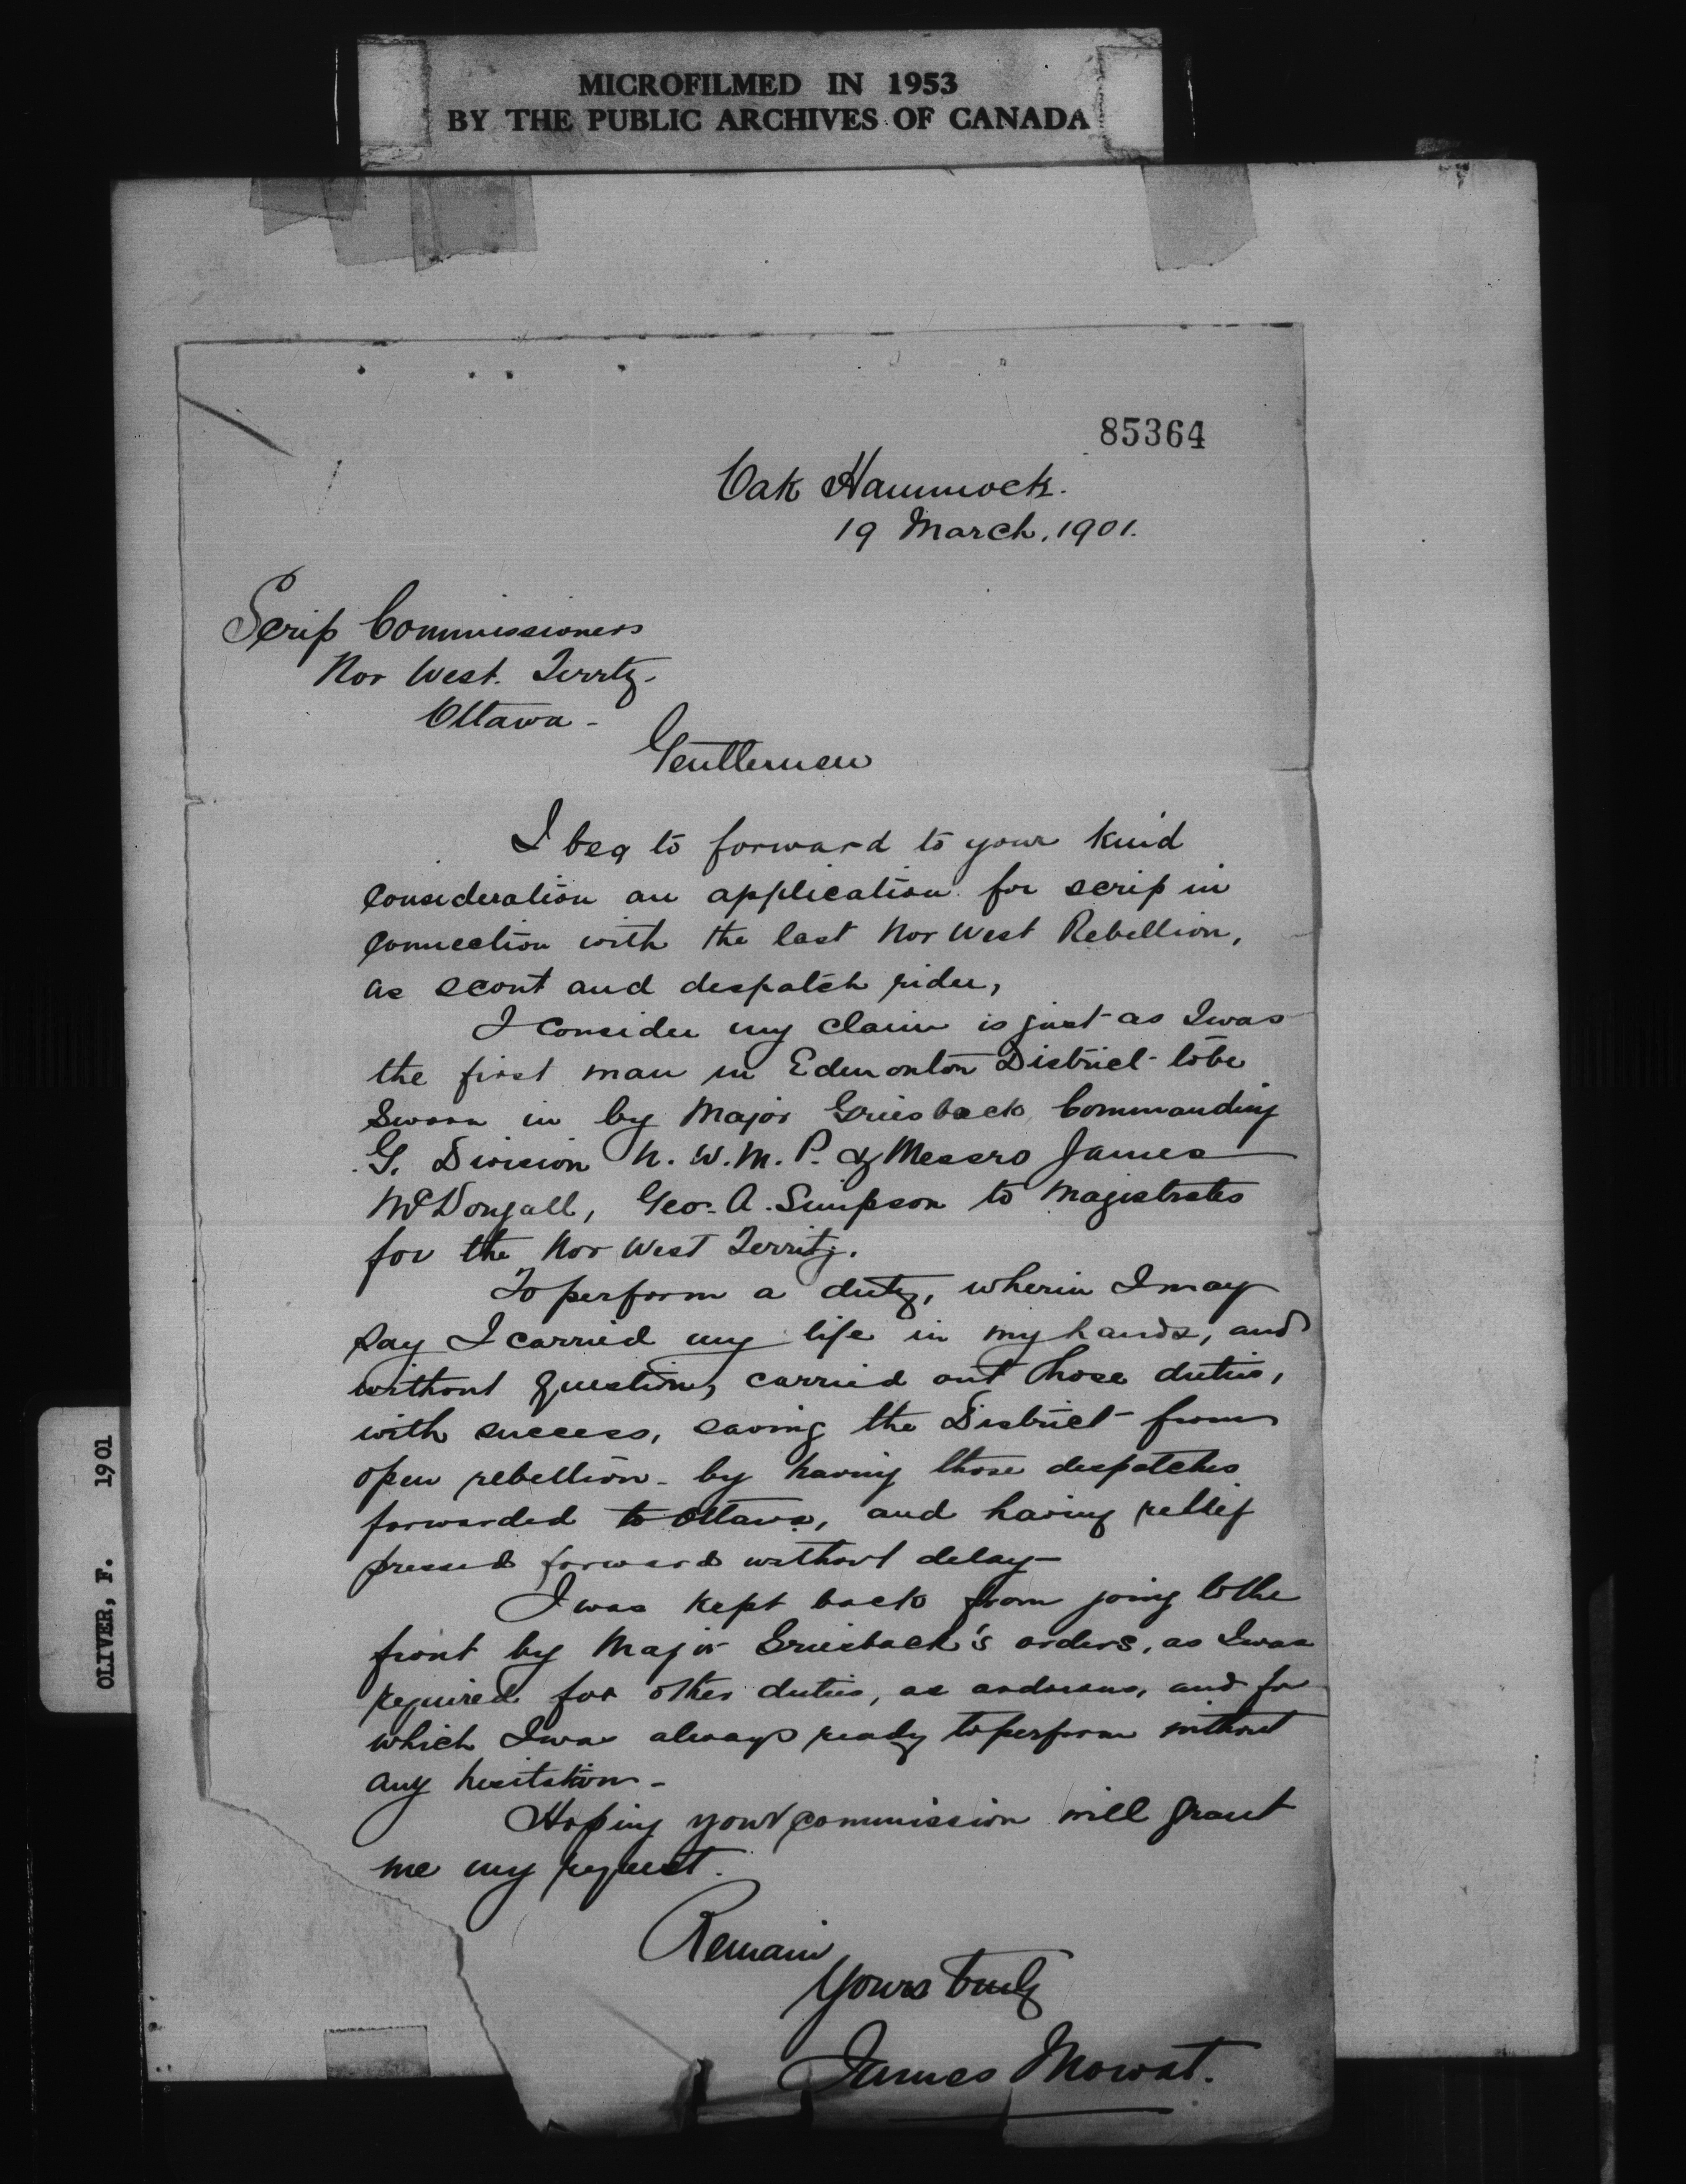 MICROFILMED IN 1953
BY THE PUBLIC ARCHIVES OF CANADA
85364
Oak Hammock.
19 March, 1901.
Scrip Commissioners
Nor West. Territy.
Ottawa -
Gentlemen
I beg to forward to your kind
consideration an application for scrip in
connection with the last Nor West Rebellion,
as scout and despatch rider,
I consider my claim is just as I was
the first man in Edmonton District to be
sworn in by Major Griesback, Commanding
G. Division N. W. M. P. & Messrs James
McDougall, Geo. A. Simpson to Magistrates
for the Nor West Territy.
To perform a duty, wherin I may
say I carried my life in my hands, and
without question, carried out those duties,
with success, saving the District from
open rebellion - by having those despatches
forwarded to Ottawa, and having relief
pressed forward without delay -
I was kept back from going to the
front by Major Griesback's orders, as I was
required for other duties, as arduous, and for
which I was always ready to perform without
any hesitation -
Hoping your commission will grant
me my request.
Remain
Yours truly
James Mowat.
OLIVER, F. 1901